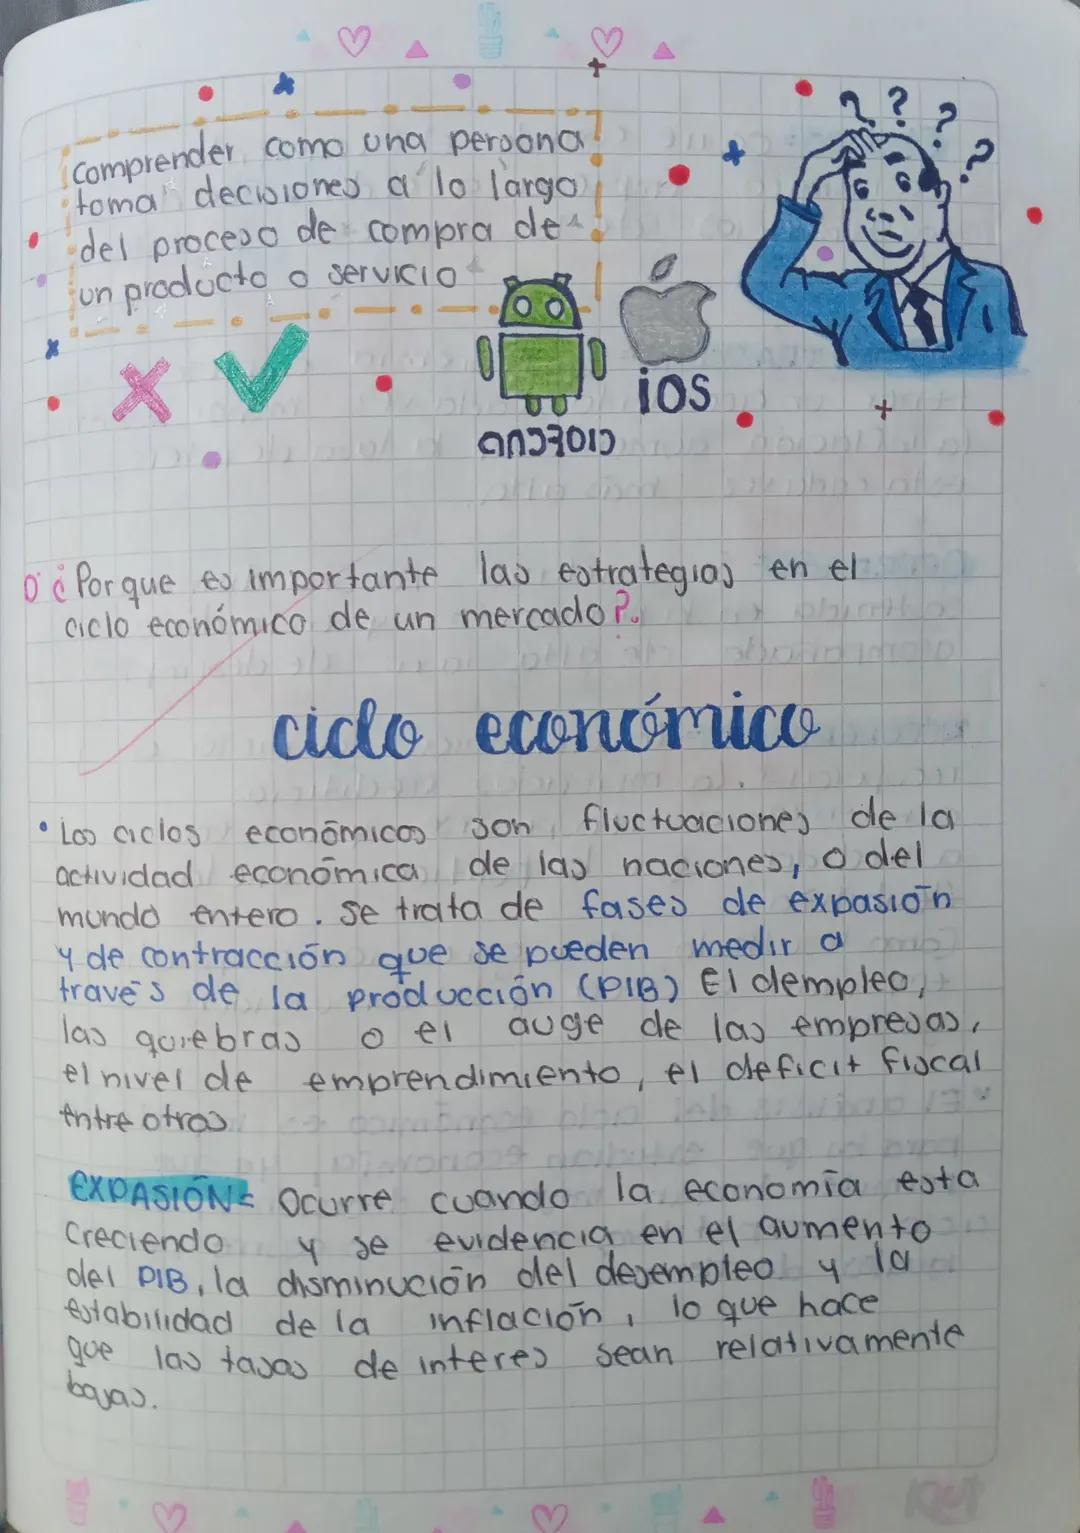 comprender como una persona
toma decisiones a lo largo
del proceso de compra de
un producto o servicio
iOS
android
¿Por que es importante las estrategias en el
ciclo económico de un mercado?.
ciclo económico
• Los ciclos económicos son fluctuaciones de la
actividad económica de las naciones, o del
mundo entero. Se trata de fases de expasión
y de contracción que se pueden medir a
través de la producción (PIB) El dempleo,
las quiebras o el auge de las empresas,
el nivel de emprendimiento, el deficit fiscal
entre otros
EXPASIÓN= Ocurre cuando la economía esta
Creciendo y se evidencia en el aumento
del PIB, la disminución del desempleo y la
estabilidad de la inflación, lo que hace
que las tasas de interes sean relativamente
bajas.